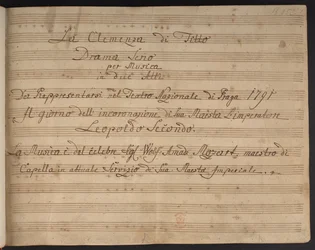 La Clemenza di Titto
Drama Serio
per Musica
in due Atti
Da Rappresentarsi nel Teatro Nazionale di Praga 1791
Al giorno dell' incoronazione di Sua Maesta l'imperatore
Leopoldo Secondo.
La Musica è del celebre Wolf: Amad: Mozart, maestro di
Capella in attuale Servizio di Sua Maesta Imperiale